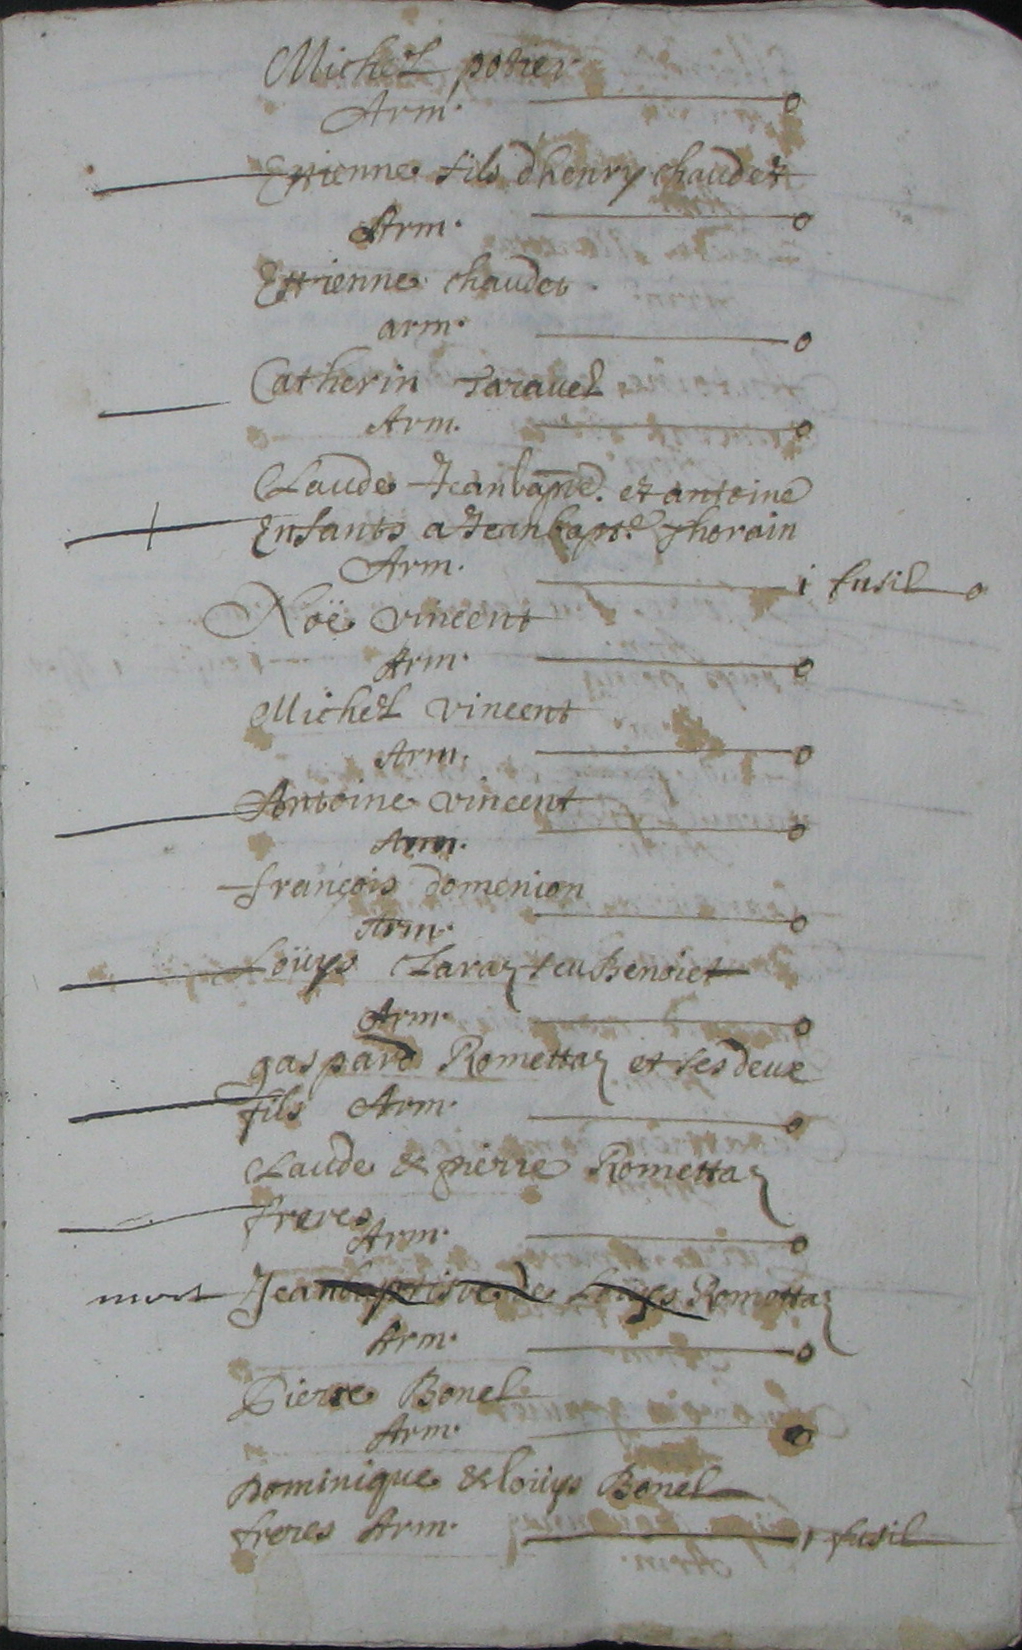 Michel potier
Arm. o
Estienne fils d'henry chaudet
Arm. o
Estienne chaudet
arm. o
Catherin Taravel
Arm. o
Claude Jeanbapte. et antoine
Enfants a Jeanbapte. Thorain
Arm. i fusil o
Noë vincent
Arm. o
Michel vincent
Arm. o
Antoine vincent
Arm. o
françois domenion
Arm. o
Loüys Claraz feu Benoict
Arm. o
gaspard Romettaz et ses deux
fils Arm. o
Claude & pierre Romettaz
freres
Arm. o
mort Jeanbaptiste de Loüys Romettaz
Arm. o
Pierre Bonel
Arm. o
Dominique & loüys Bonel
freres Arm. 1 fusil